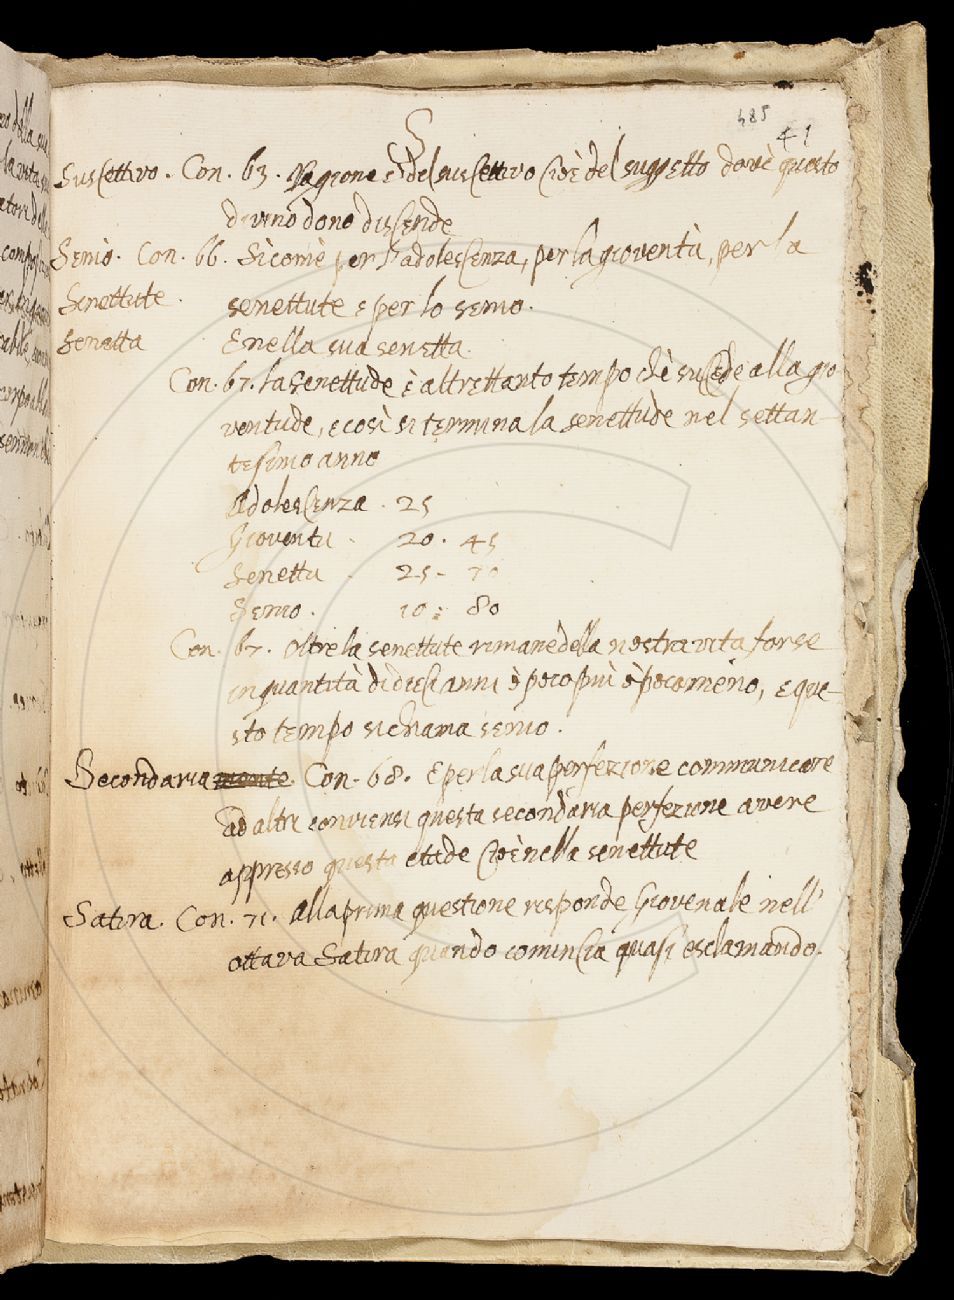 485
41
S
Suscettivo. Con. 63. Ragione è del suscettivo cioè del suggetto dovè questo
divino dono discende
Senio. Con. 66. Sicomè per l'adolescenza, per la gioventù, per la
Senettute. senettute e per lo senio.
Senetta E nella sua senetta.
Con. 67. la Senettude è altrettanto tempo chè succede alla gio
ventude, e così si termina la senettude nel settan-
tesimo anno
Adolescenza. 25
Gioventu. 20. 45
Senetta. 25- 70
Senio. 10: 80
Con. 67. oltre la senettute rimane della nostra vita forse
in quantità di dieci anni ò poco più ò poco meno, e que-
sto tempo si chiama senio.
Secondariamente. Con. 68. E per la sua perfezione communicare
ad altri conviensi questa secondaria perfezione avere
appresso questa etade cioè nella senettute
Satira. Con. 71. alla prima questione risponde Giovenale nell'
ottava Satira quando comincia quasi esclamando.